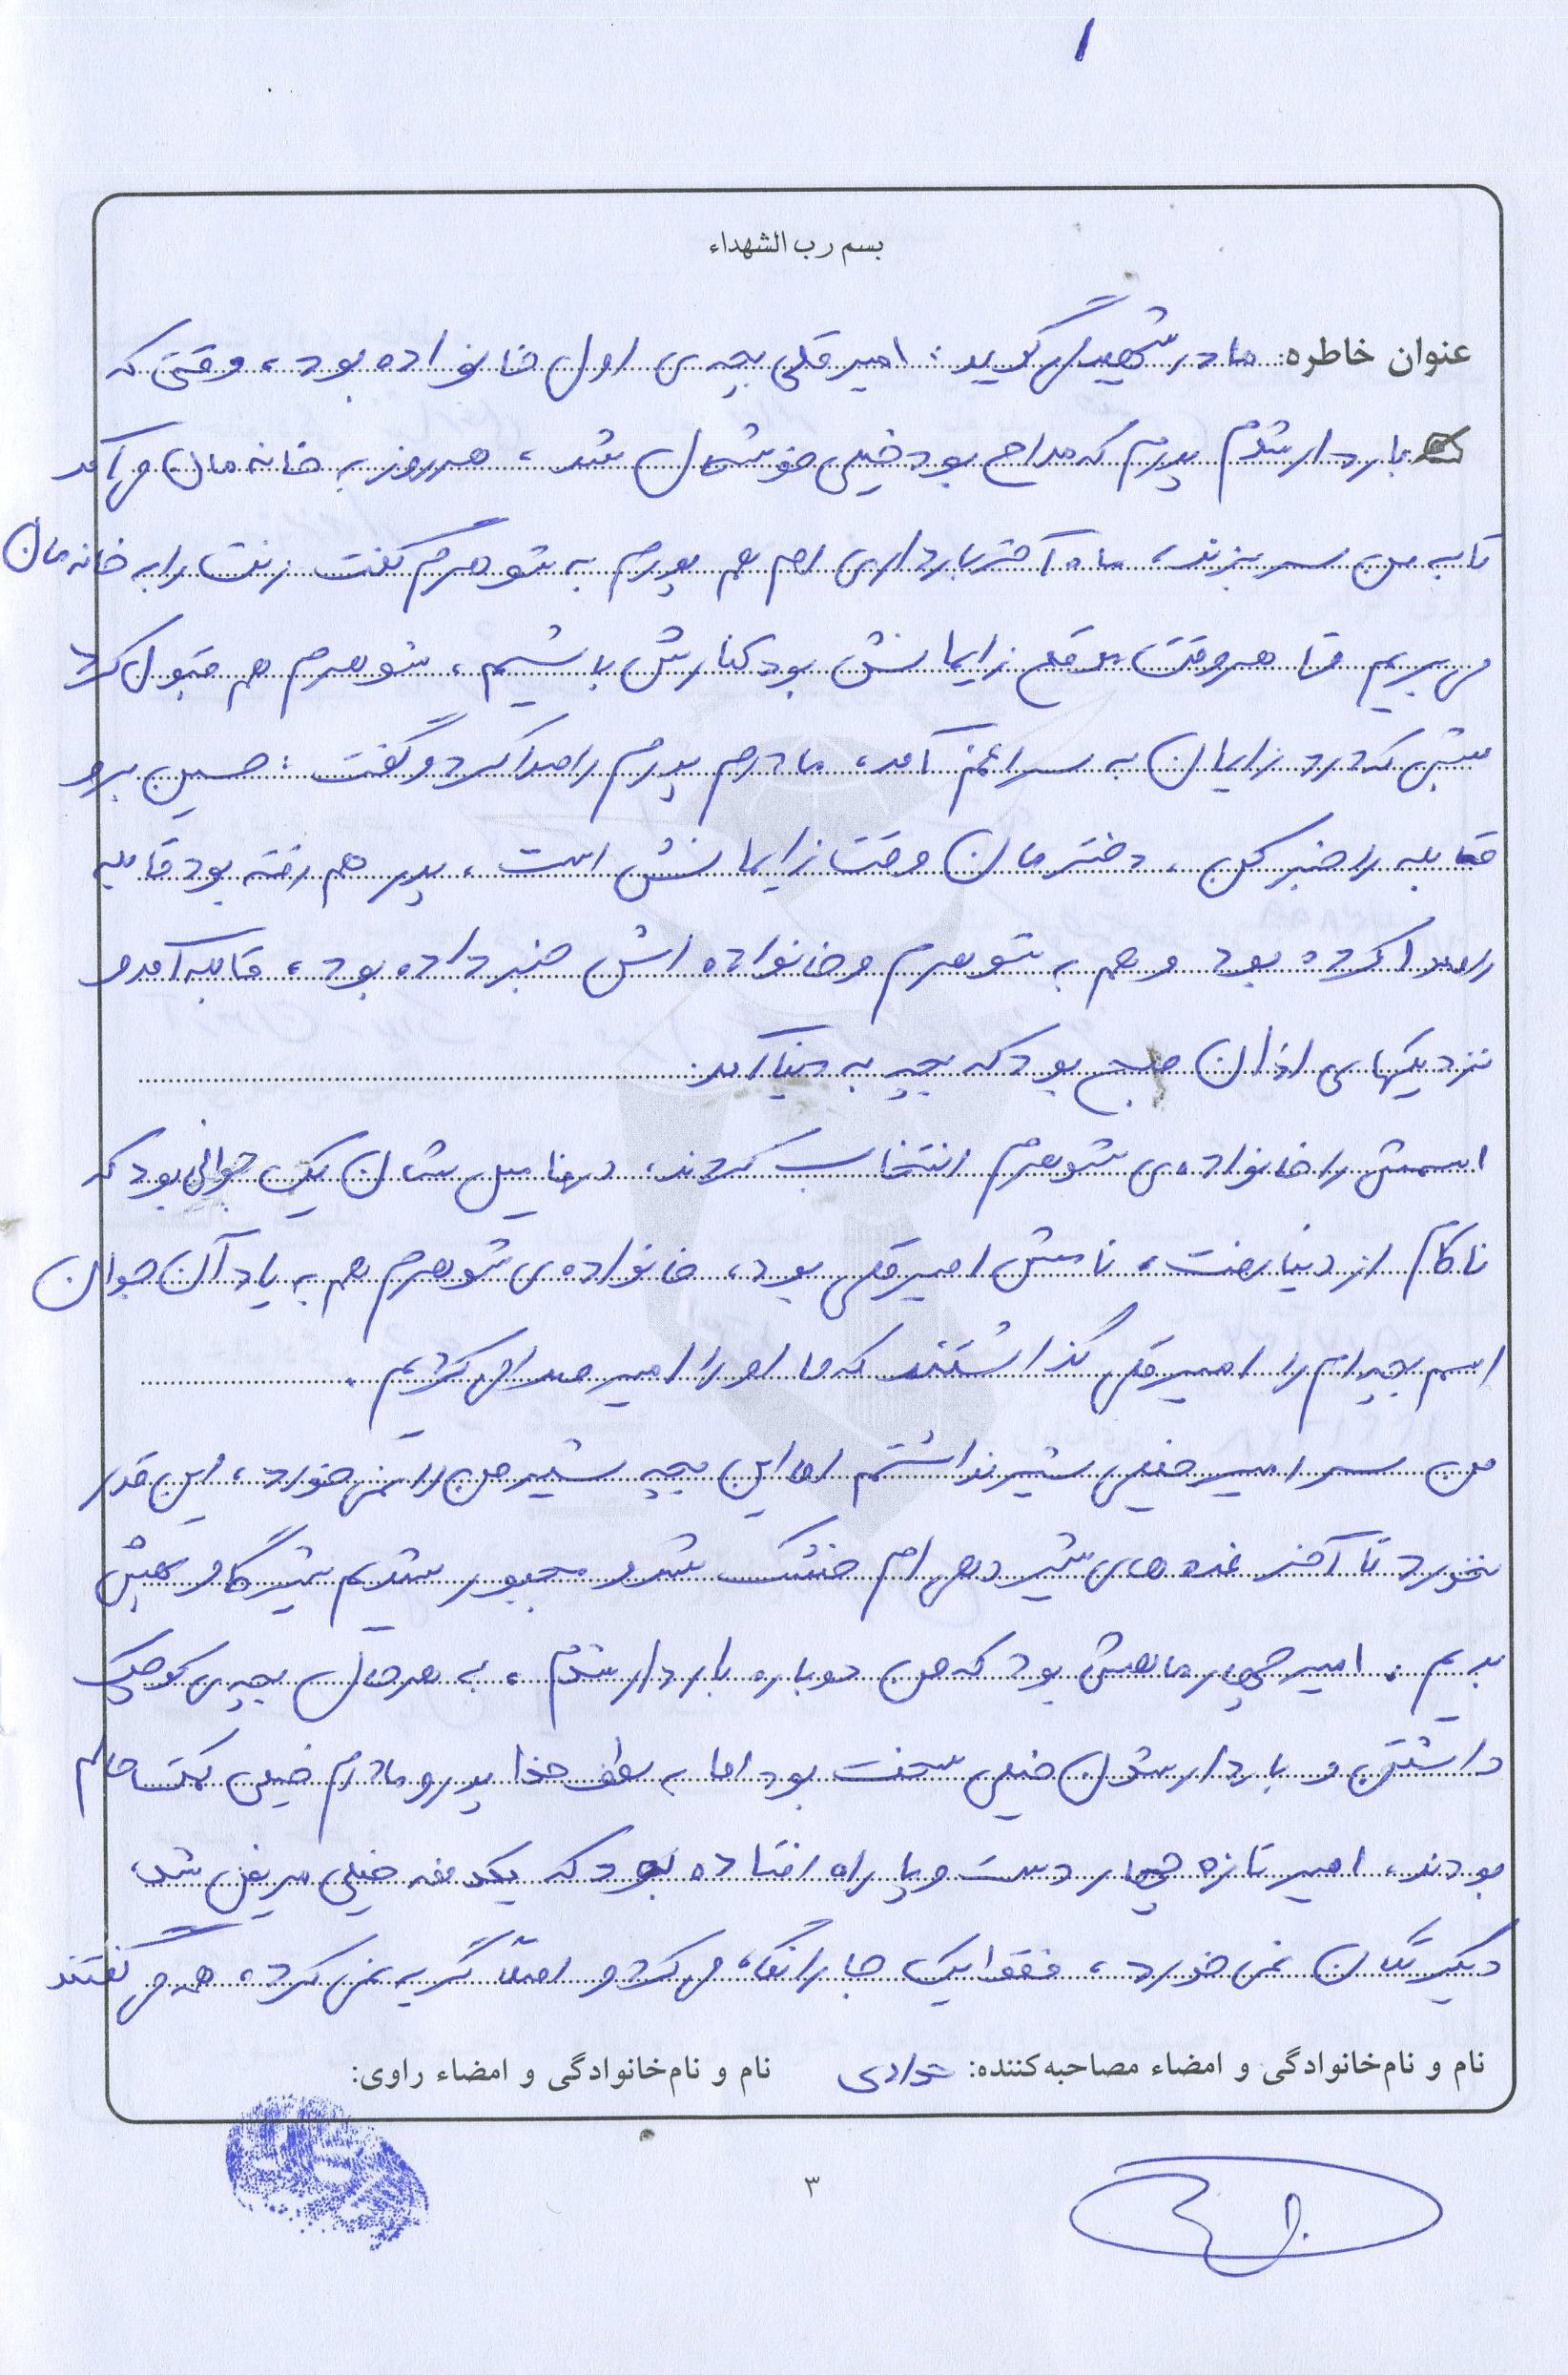 ۱
بسم رب الشهداء
عنوان خاطره: مادر شهید می گوید: امیرقلی بچه ی اول خانواده بود، وقتی که
باردار شدم پدرم که مداح بود خیلی خوشحال شد، هر روز به خانه مان می آمد
تا به من سر بزند، ماه آخر بارداری ام هم پدرم به شوهرم گفت زنت را به خانه مان
می بریم تا هر وقت موقع زایمانش بود کنارش باشیم، شوهرم هم قبول کرد
شبی که درد زایمان به سراغم آمد، مادرم پدرم را صدا کرد و گفت: حسین برو
قابله را خبر کن، دخترمان وقت زایمانش است، پدر هم رفته بود قابله
را صدا کرده بود و هم به شوهرم و خانواده اش خبر داده بود، قابله آمد و
نزدیکهای اذان صبح بود که بچه به دنیا آمد.
اسمش را خانواده ی شوهرم انتخاب کردند، در فامیل شان یک جوانی بود که
ناکام از دنیا رفت، نامش امیرقلی بود، خانواده ی شوهرم هم به یاد آن جوان
اسم بچه ام را امیرقلی گذاشتند که ما او را امیر صدا می کردیم.
من سر امیر خیلی شیر نداشتم اما این بچه شیر من را نمی خورد، این قدر
نخورد تا آخر غده های شیر دهی ام خشک شد و مجبور شدیم شیر گاو بهش
بدیم. امیر چهار ماهش بود که من دوباره باردار شدم، به هر حال بچه ی کوچک
داشتن و باردار شدن خیلی سخت بود اما به لطف خدا پدر و مادرم خیلی کمک حالم
بودند، امیر تازه چهار دست و پا راه افتاده بود که یکدفعه خیلی مریض شد،
دیگر تکان نمی خورد، فقط یک جا را نگاه می کرد و اصلاً گریه نمی کرد، همه می گفتند
نام و نام‌خانوادگی و امضاء مصاحبه‌کننده:
نام و نام‌خانوادگی و امضاء راوی:
۳